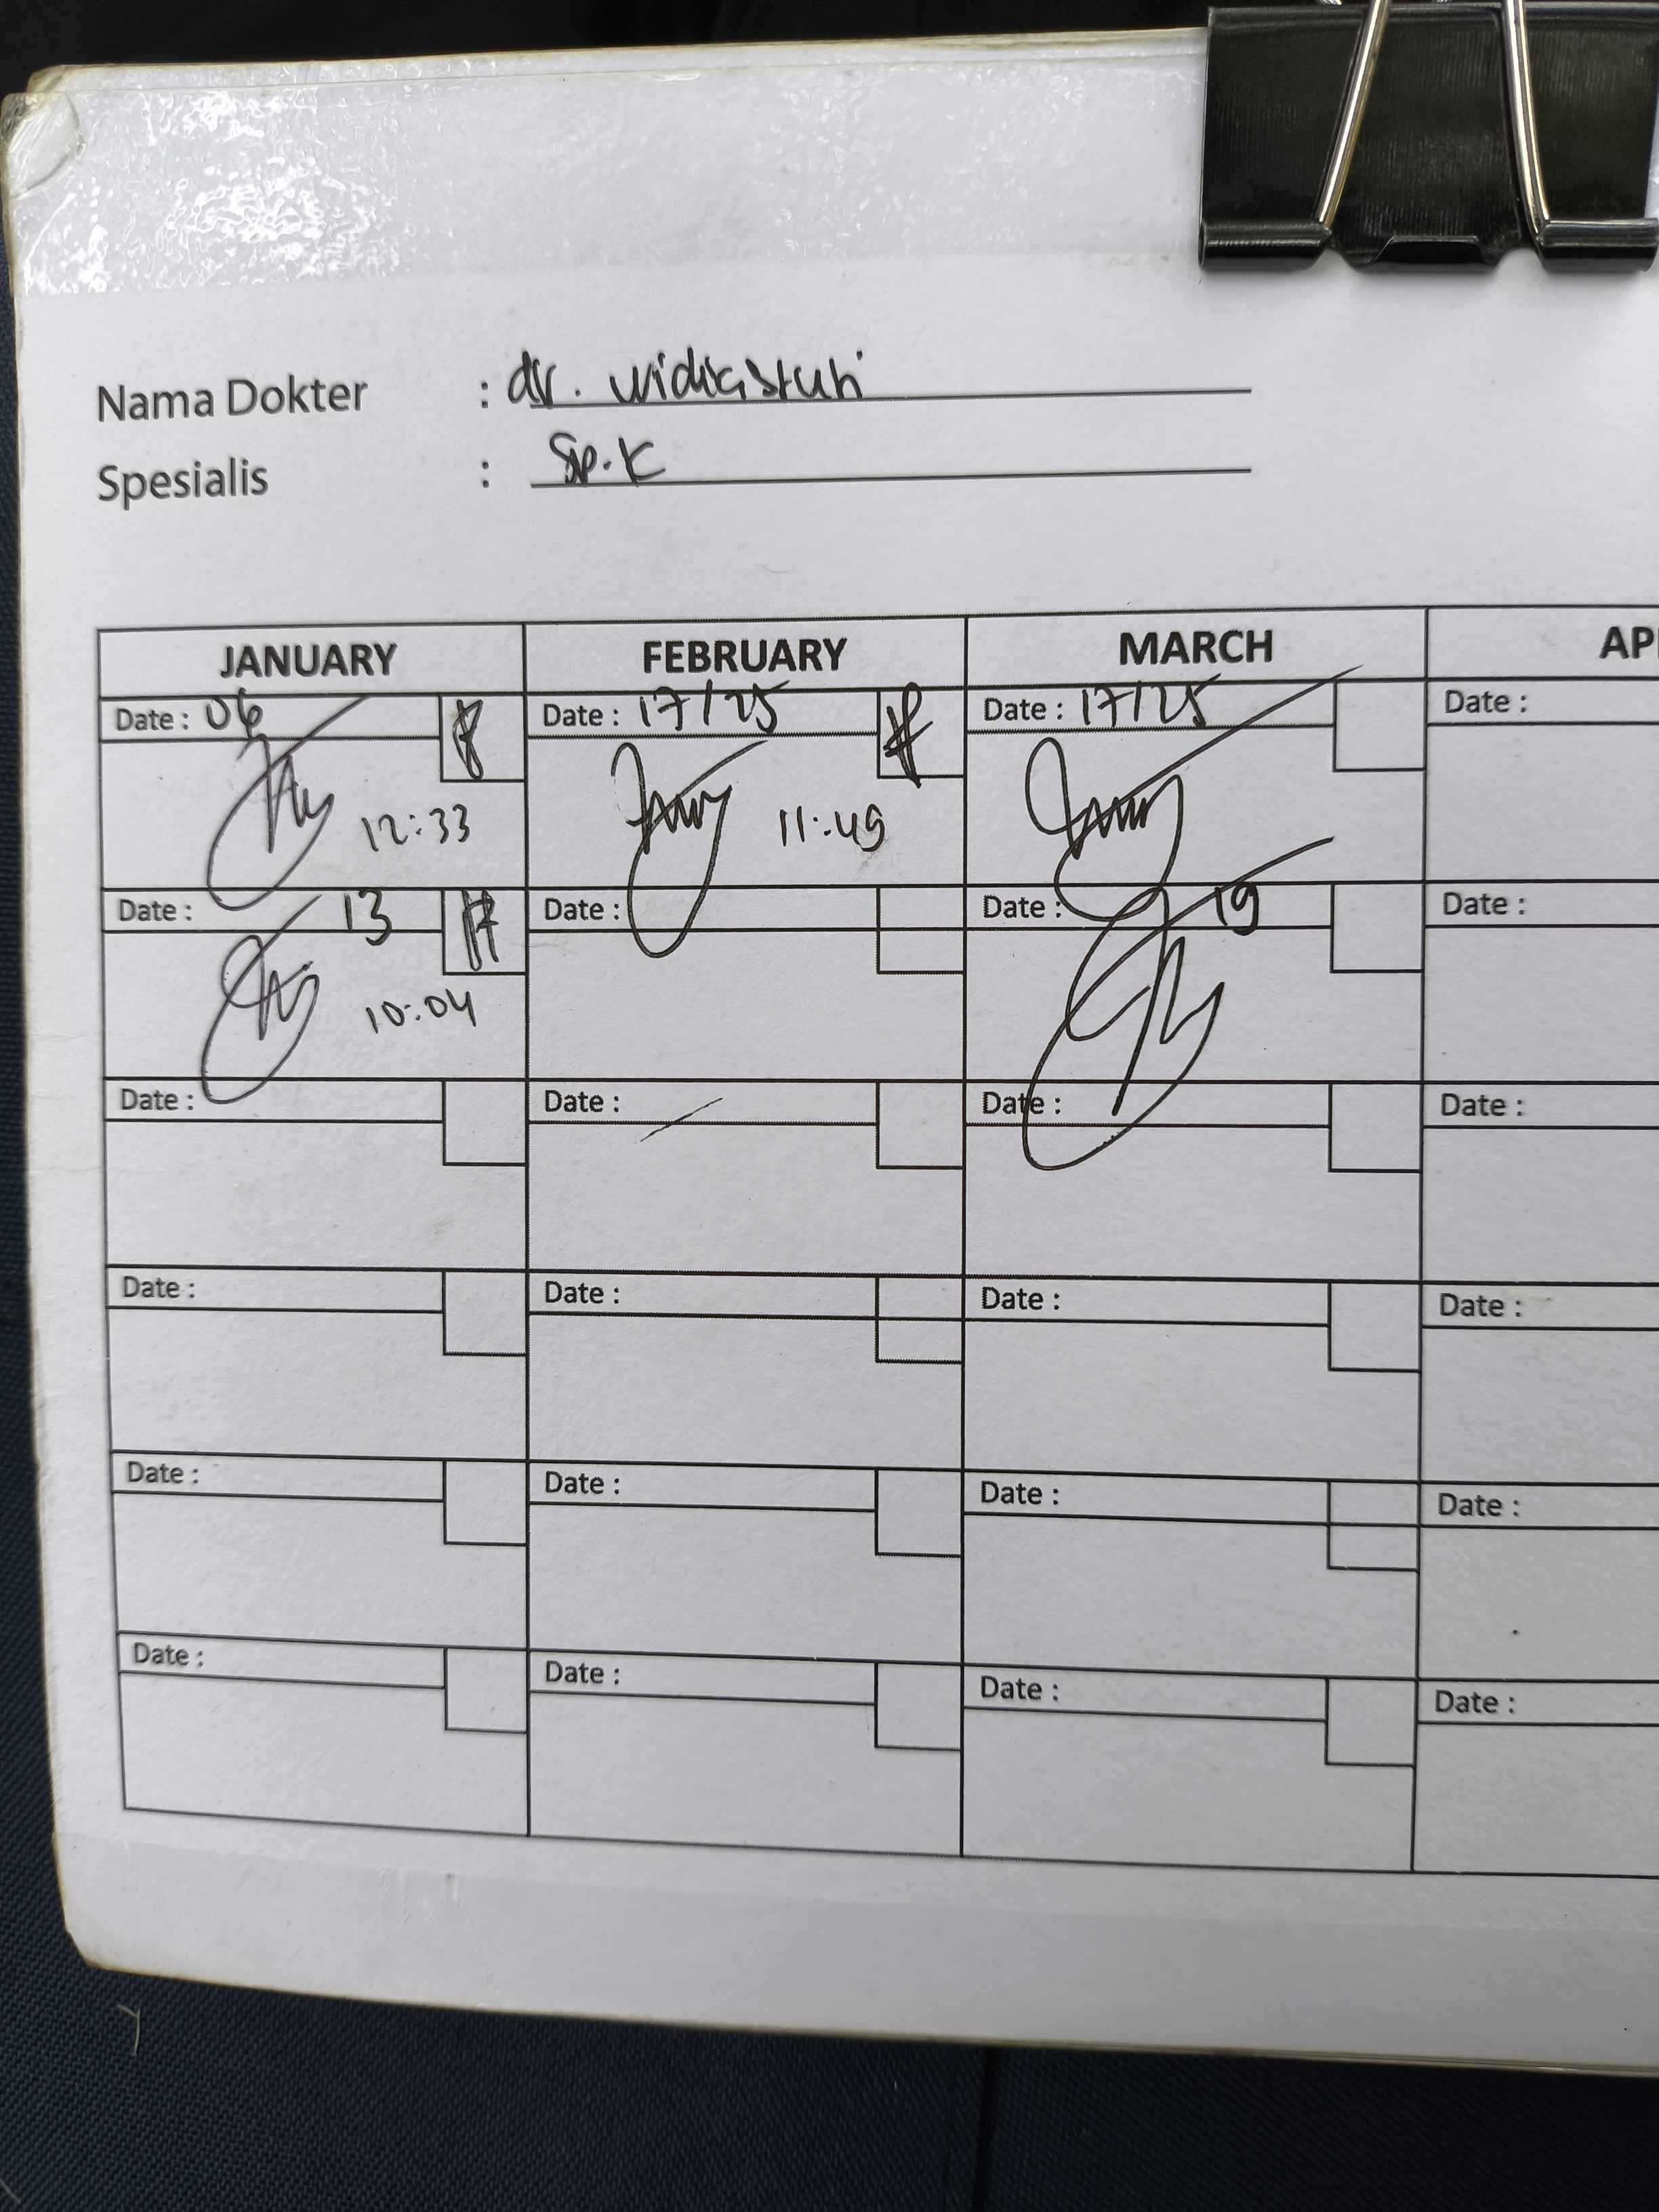 Nama Dokter : dr. widiastuti
Spesialis : Sp.K
JANUARY FEBRUARY MARCH AP
Date : 06 Date : 17/25 Date : 17/25 Date :
12:33 11:49
Date : 13 Date : Date : 19 Date :
10:04
Date : Date : Date : Date :
Date : Date : Date : Date :
Date : Date : Date : Date :
Date : Date : Date : Date :